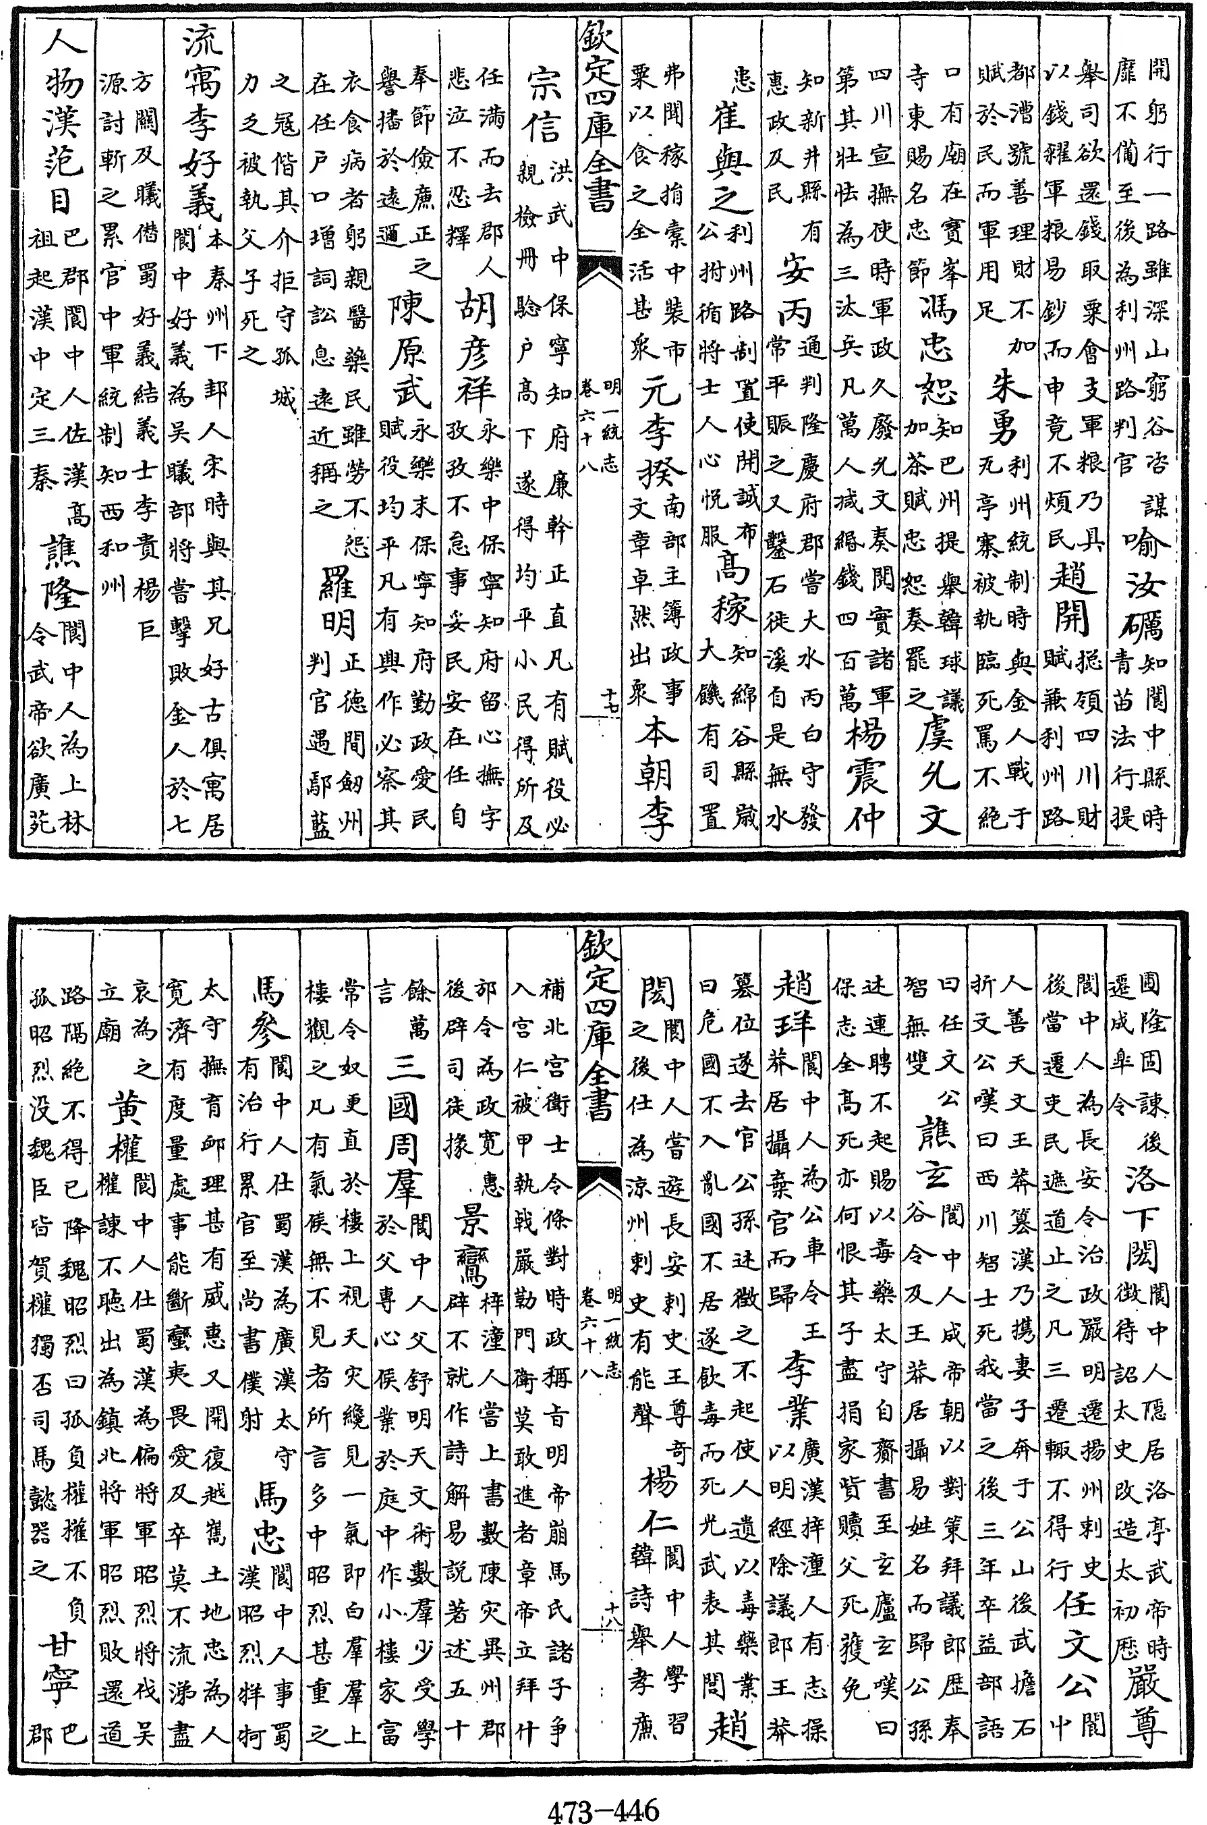 開躬行一路雖深山窮谷咨謀靡不備至後為利州路判官喻汝礪知閬中縣時青苗法行提
舉司欲還錢取粟會支軍粮乃具以錢糴軍粮易鈔而申竟不煩民趙開捴領四川財賦兼利州路
都漕號善理財不加賦於民而軍用足朱勇利州統制時與金人戰于兀亭寨被執臨死罵不絕
口有廟在寳峯寺東賜名忠節馮忠恕知巴州提舉韓球議加茶賦忠恕奏罷之虞允文
四川宣撫使時軍政久廢允文奏閱實諸軍第其壯怯為三汰兵凡萬人減緡錢四百萬楊震仲
知新井縣有惠政及民安丙通判隆慶府郡嘗大水丙白守發常平賑之又鑿石徙溪自是無水
患崔與之利州路制置使開誠布公拊循將士人心悅服高稼知綿谷縣嵗大饑有司置
弗聞稼捐橐中裝市粟以食之全活甚衆元李揆南部主簿政事文章卓然出衆本朝李
欽定四庫全書 明一統志卷六十八 十七
宗信洪武中保寧知府廉幹正直凡有賦役必親檢冊騐户高下遂得均平小民得所及
任滿而去郡人悲泣不忍釋胡彦祥永樂中保寧知府留心撫字孜孜不怠事妥民安在任自
奉節儉廉正之譽播於遠邇陳原武永樂末保寧知府勤政愛民賦役均平凡有興作必察其
衣食病者躬親醫藥民雖勞不怨在任戶口增詞訟息遠近稱之羅明正德間劒州判官遇鄢藍
之冦偕其介拒守孤城力乏被執父子死之
流寓李好義本秦州下邽人宋時與其兄好古俱寓居閬中好義為吳曦部將嘗擊敗金人於七
方關及曦僣蜀好義結義士李貴楊巨源討斬之累官中軍統制知西和州
人物漢范目巴郡閬中人佐漢高祖起漢中定三秦譙隆閬中人為上林令武帝欲廣苑
圃隆固諫後遷成臯令洛下閎閬中人隱居洛亭武帝時徵待詔太史改造太初歴嚴尊
閬中人為長安令治政嚴明遷揚州刺史後當遷吏民遮道止之凡三遷輙不得行任文公閬中
人善天文王莽簒漢乃攜妻子奔于公山後武擔石折文公嘆曰西川智士死我當之後三年卒益部語
曰任文公智無雙譙玄閬中人成帝朝以對策拜議郎歴奉谷令及王莽居攝易姓名而歸公孫
述連聘不起賜以毒藥太守自齎書至玄廬玄嘆曰保志全高死亦何恨其子盡捐家貲贖父死獲免
趙珜閬中人為公車令王莽居攝棄官而歸李業廣漢梓潼人有志操以明經除議郎王莽
簒位遂去官公孫述徵之不起使人遺以毒藥業曰危國不入亂國不居遂飲毒而死光武表其閭趙
閎閬中人嘗遊長安刺史王尊奇之後仕為涼州刺史有能聲楊仁閬中人學習韓詩舉孝廉
欽定四庫全書 明一統志卷六十八 十八
補北宮衛士令條對時政稱旨明帝崩馬氏諸子爭入宮仁被甲執戟嚴勤門衛莫敢進者章帝立拜什
邡令為政寛惠後辟司徒掾景鸞梓潼人嘗上書數陳灾異州郡辟不就作詩解易說著述五十
餘萬言三國周羣閬中人父舒明天文術數羣少受學於父專心候業於庭中作小樓家富
常令奴更直於樓上視天灾纔見一氣即白羣羣上樓觀之凡有氣候無不見者所言多中昭烈甚重之
馬參閬中人仕蜀漢為廣漢太守有治行累官至尚書僕射馬忠閬中人事蜀漢昭烈牂牁
太守撫育卹理甚有威惠又開復越嶲土地忠為人寛濟有度量處事能斷蠻夷畏愛及卒莫不流涕盡
哀為之立廟黄權閬中人仕蜀漢為偏將軍昭烈將伐吳權諫不聽出為鎮北將軍昭烈敗還道
路隔絶不得已降魏昭烈曰孤負權權不負孤昭烈没魏臣皆賀權獨否司馬懿器之甘寧巴郡
473-446